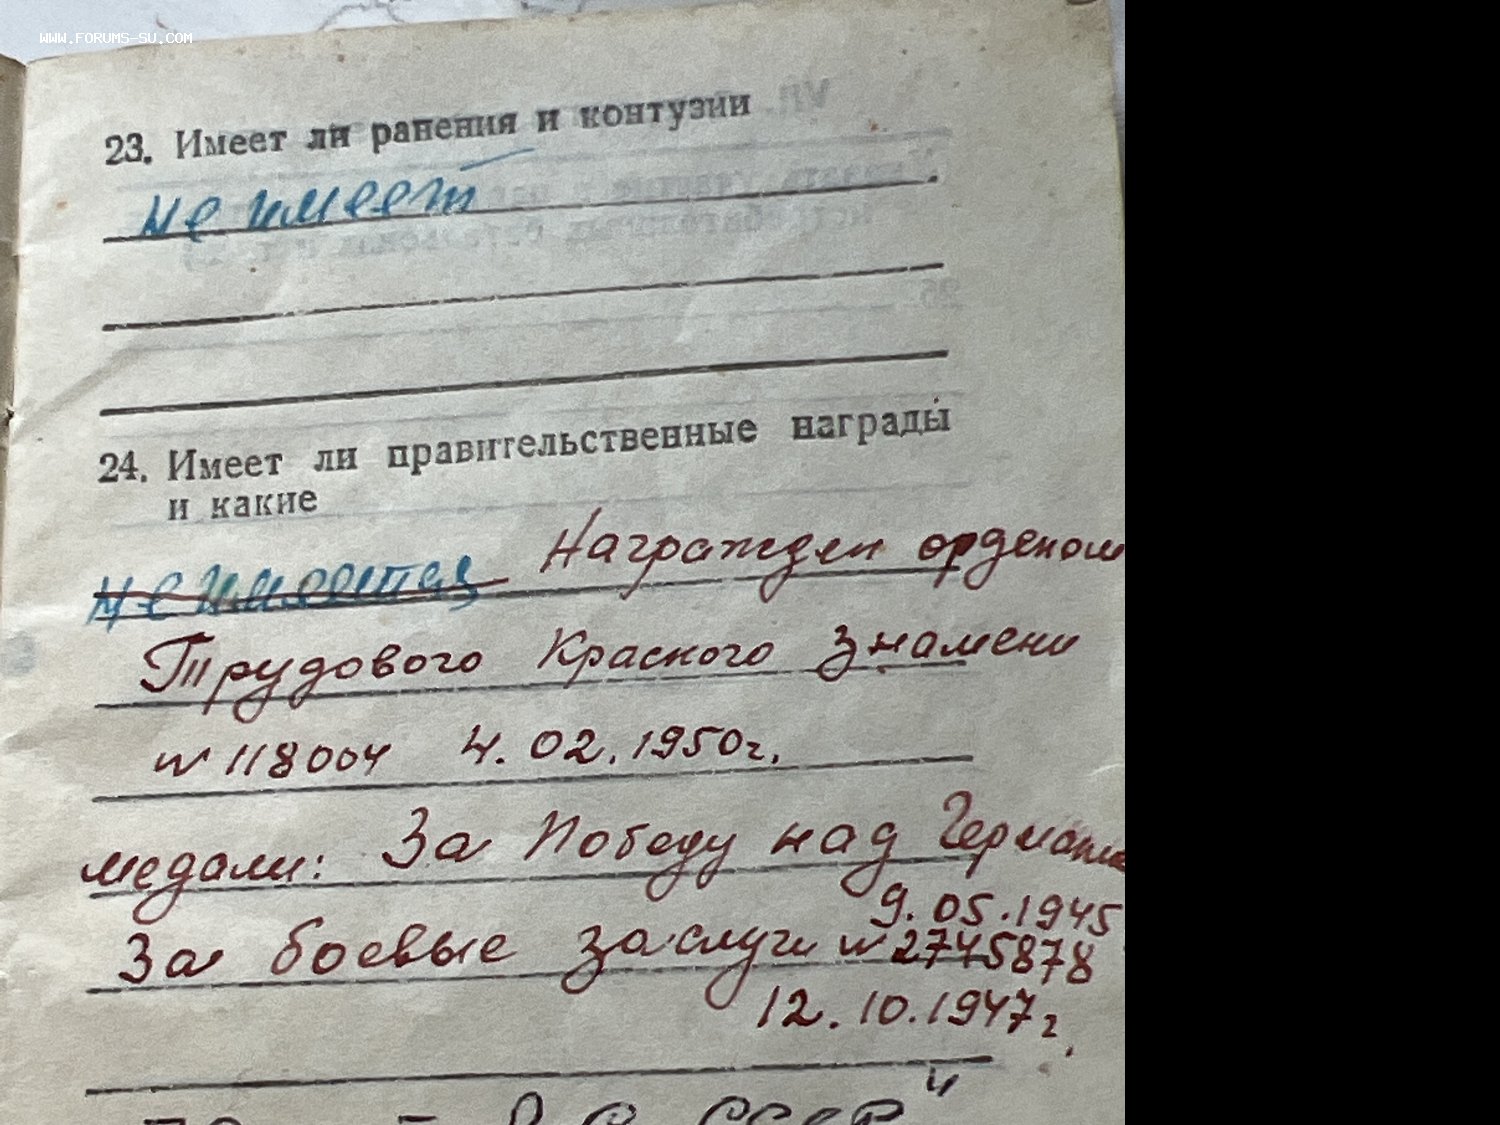 WWW.FORUMS-SU.COM
23. Имеет ли ранения и контузии
не имеет
24. Имеет ли правительственные награды
и какие
не имеется Награжден орденом
Трудового Красного Знамени
№ 118004 4.02.1950г.
медали: За Победу над Германией
9.05.1945
За боевые заслуги № 2745878
12.10.1947г.